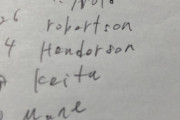 26 robertson
4 Henderson
Keita
mane